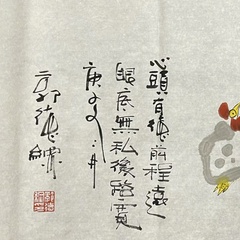 心頭有德前程遠
眼底無私後路寬
庚
郭德綱